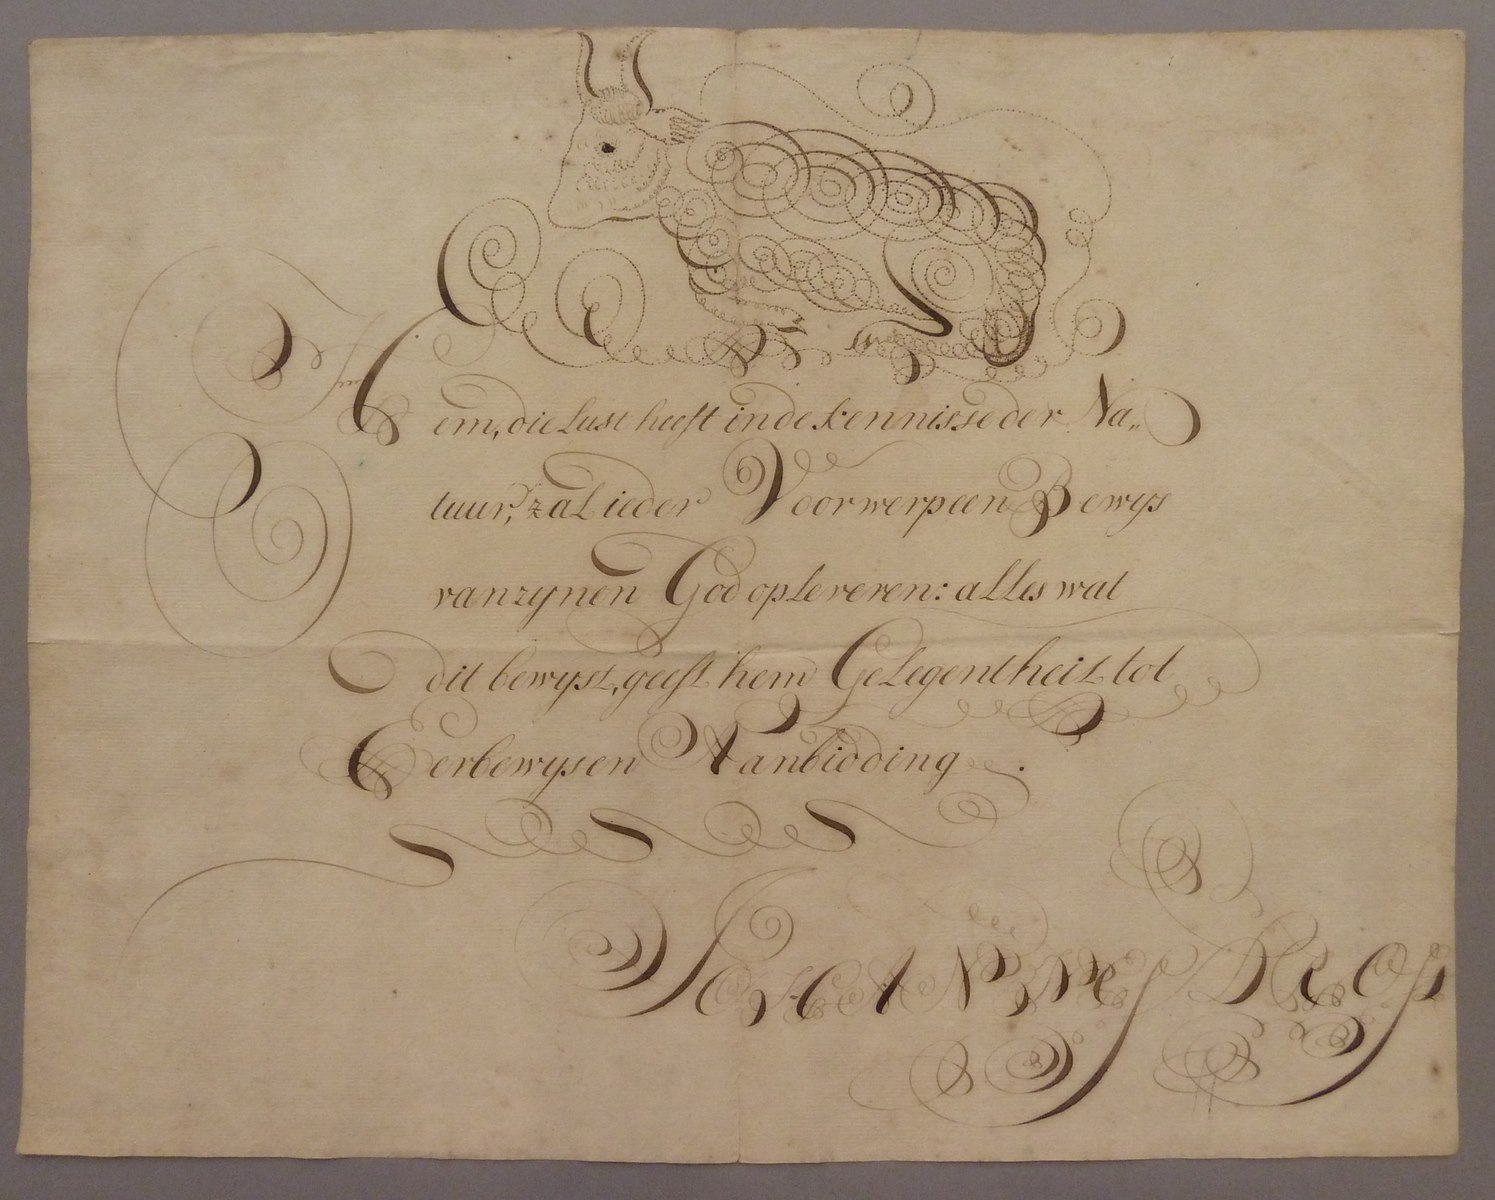 Hem, die lust heeft in de kennisse der Na„
tuur, zal ieder Voorwerp een Bewys
van zynen God opleveren: alles wat
dit bewyst, geeft hem Gelegentheit tot
Eerbewys en Aanbidding.
JOHANNES